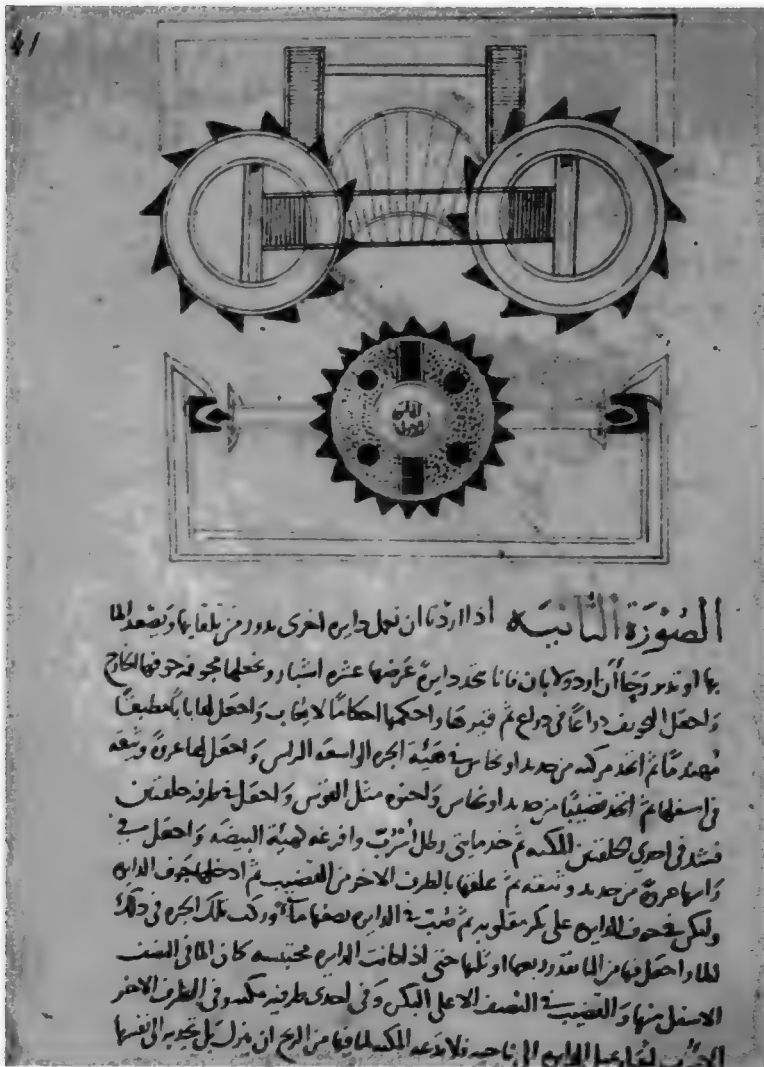 41
الصورة الثانيه اذا اردنا ان نعمل دايره اخرى تدور من تلقايها ويصعد الما
بها او تدير رحًا او دولابا فانا نتخذ دايرة عرضها عشره اشبار ونجعلها مجوفه جوفها الخارج
واجعل التجويف ذراعًا في ذراع ثم قيرها واحكمها احكامًا لا يعاب واجعل لها بابا مطبقًا
مهندمًا ثم اتخذ مركنه من حديد او نحاس في هيئة الجره الواسعه الراس واجعل لها عروة وثيقه
في اسفلها ثم اتخذ قضيبًا من حديد او نحاس واحنوه مثل القوس واجعل في طرفه حلقتين
فشد في احدي الحلقتين المكنه ثم خذ مايتى رطل اسرب وافرغه كهيئة البيضه واجعل في
راسها عروة من حديد وثيقه ثم علقها بالطرف الاخر من القضيب ثم ادخلها جوف الدايره
وليكن في جوف الدايره على بكر مقلوبه ثم صب في الدايره نصفها مآء وركب تلك الجره في ذلك
الماء واجعل فيها من الما بقدر ربعها او ثلثها حتى اذا كانت الدايره محتبسه كان الما في النصف
الاسفل منها والقضيب في النصف الاعلى البكر وفي احدى طرفيه مكنه وفي الطرف الاخر
الدايره الى ناحيه فلا تدعه المكنه لما فيها من الريح ان ينزل بل تجذبه الى نفسها